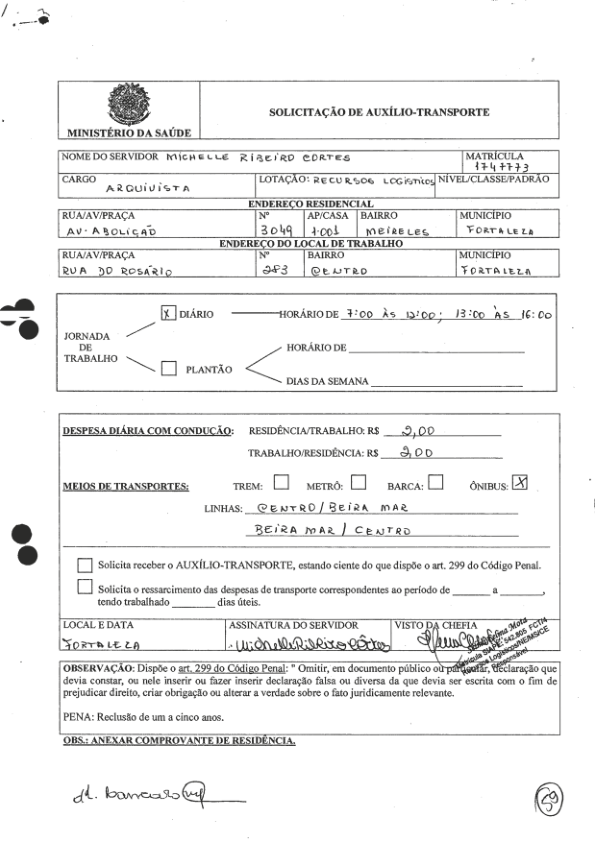 MINISTÉRIO DA SAÚDE
SOLICITAÇÃO DE AUXÍLIO-TRANSPORTE
NOME DO SERVIDOR MICHELLE RIBEIRO CORTES
MATRÍCULA
1747773
CARGO
ARQUIVISTA
LOTAÇÃO: RECURSOS LOGÍSTICOS
NÍVEL/CLASSE/PADRÃO
ENDEREÇO RESIDENCIAL
RUA/AV/PRAÇA Nº AP/CASA BAIRRO MUNICÍPIO
AV. ABOLIÇÃO 3049 1.001 MEIRELES FORTALEZA
ENDEREÇO DO LOCAL DE TRABALHO
RUA/AV/PRAÇA Nº BAIRRO MUNICÍPIO
RUA DO ROSÁRIO 283 CENTRO FORTALEZA
X DIÁRIO HORÁRIO DE 7:00 ÀS 12:00; 13:00 ÀS 16:00
JORNADA
DE
TRABALHO
HORÁRIO DE
PLANTÃO
DIAS DA SEMANA
DESPESA DIÁRIA COM CONDUÇÃO: RESIDÊNCIA/TRABALHO: R$ 2,00
TRABALHO/RESIDÊNCIA: R$ 2,00
MEIOS DE TRANSPORTES: TREM: METRÔ: BARCA: ÔNIBUS: X
LINHAS: CENTRO / BEIRA MAR
BEIRA MAR / CENTRO
Solicita receber o AUXÍLIO-TRANSPORTE, estando ciente do que dispõe o art. 299 do Código Penal.
Solicita o ressarcimento das despesas de transporte correspondentes ao período de ______ a ______,
tendo trabalhado ______ dias úteis.
LOCAL E DATA ASSINATURA DO SERVIDOR VISTO DA CHEFIA
FORTALEZA Michelle Ribeiro Côrtes
Mota
Matrícula SIAPE: 542.805 FCT/4
Recursos Logísticos/NEMS/CE
Responsável
OBSERVAÇÃO: Dispõe o art. 299 do Código Penal: " Omitir, em documento público ou particular, declaração que
devia constar, ou nele inserir ou fazer inserir declaração falsa ou diversa da que devia ser escrita com o fim de
prejudicar direito, criar obrigação ou alterar a verdade sobre o fato juridicamente relevante.
PENA: Reclusão de um a cinco anos.
OBS.: ANEXAR COMPROVANTE DE RESIDÊNCIA.
59